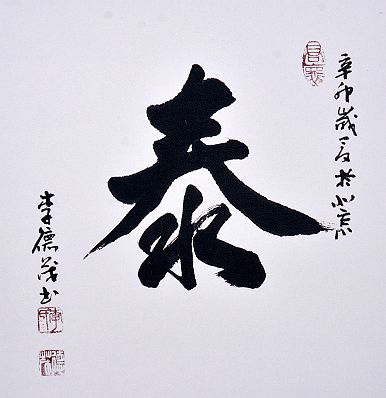 辛卯歲夏於北京
泰
李德茂書